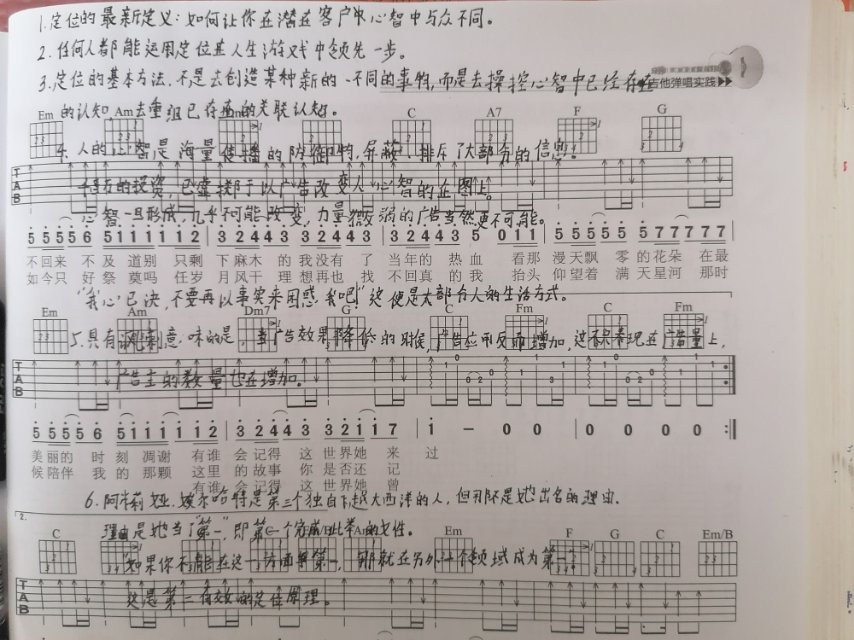 1.定位的最新定义：如何让你在潜在客户心智中与众不同。
2.任何人都能运用定位在人生游戏中领先一步。
3.定位的基本方法，不是去创造某种新的、不同的事物，而是去操控心智中已经存在
吉他弹唱实践▶▶
的认知，去重组已存在的关联认知。
Em Am C A7 F G
4.人的心智是海量传播的防御物，屏蔽、排斥了大部分的信息。
T A B
的投资，已掷于以广告改变人心智的企图上。
心智一旦形成，几乎不可能改变，力量微弱的广告当然更不可能。
5 5 5 5 6 5 1 1 1 1 1 2 3 2 4 3 3 2 4 3 3 2 4 3 5 0 1 1 5 5 5 5 5 5 7 7 7 7 7
不回来 不及 道别 只剩 下麻木 的我没有 了 当年的 热血 看那 漫天飘 零的花朵 在最
如今只 好祭 奠吗 任岁 月风干 理想再也 找 不回真的我 抬头 仰望着 满天星河 那时
“我心已决，不要再以事实来困惑我吧！”这便是大部分人的生活方式。
Em Am Dm7 G C Fm C Fm
5.具有讽刺意味的是，当广告效果降低的时候，广告应用反而增加，这不只表现在广告量上，
T A B
广告主的数量也在增加。
5 5 5 5 6 5 1 1 1 1 1 2 3 2 4 3 4 3 3 2 1 1 7 1 – 0 0 0 0 0 0
美丽的 时 刻 凋谢 有谁 会记得 这 世界她 来 过
候陪伴 我的 那颗 这里 的故事 你 是否还 记
有谁 会记得 这 世界她 曾
6.阿米莉娅·埃尔哈特是第三个独自飞越大西洋的人，但那不是她出名的理由，
2.
理由是她当了“第一”，即第一个完成此举的女性。
C Em F G C Em/B
“如果你不能在这一方面争第一，那就在另外一个领域成为第一”
T A B
这是第二有效的定位原理。